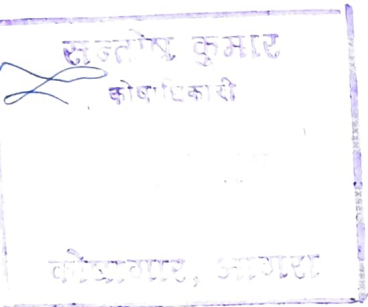 सन्तोष कुमार
कोषाधिकारी
कोषागार, आगरा